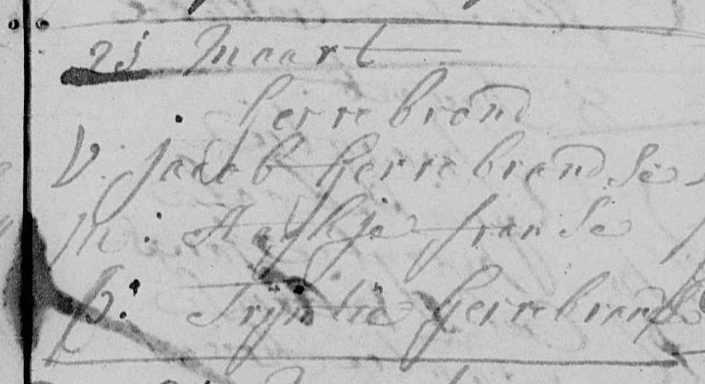 25 Maart
Gerrebrand
V: Jacob Gerrebrandse
M: Aefkje franse
P: Trijntie Gerrebrands